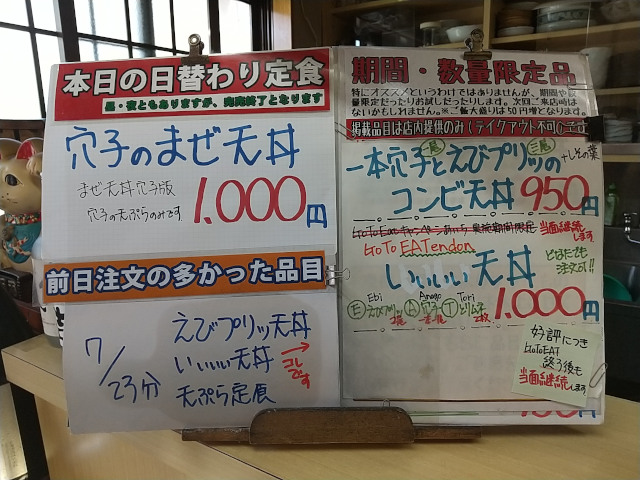 本日の日替わり定食
昼・夜ともありますが、完売終了となります
穴子のまぜ天丼
まぜ天丼穴子版
穴子の天ぷらのみです
1.000円
前日注文の多かった品目
7/23分
えびプリッ天丼
いいぃい天丼
コレです
天ぷら定食
期間・数量限定品
特にオススメというわけではありませんが、期間や数
量限定だったりお試しだったりします。次回ご来店時は
ないかもしれません。※ご飯大盛りは50円増となります。
掲載品目は店内提供のみ(テイクアウト不可)です
一本穴子とえびプリッの
二尾
+しその葉
コンビ天丼 950円
GoToEatキャンペーン
当面継続します
GoTo EATendon
どなたでも
注文可!!
いいぃい天丼
Ebi Anago Tori
Ⓔえびプリッ Ⓐ穴子 Ⓣとりムネ
2尾 一本 2枚
1.000円
好評につき
GoToEAT
終了後も
当面継続します